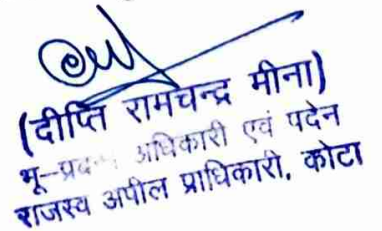 (दीप्ति रामचन्द्र मीना)
अधिकारी एवं पदेन
राजस्व अपील प्राधिकारी, कोटा